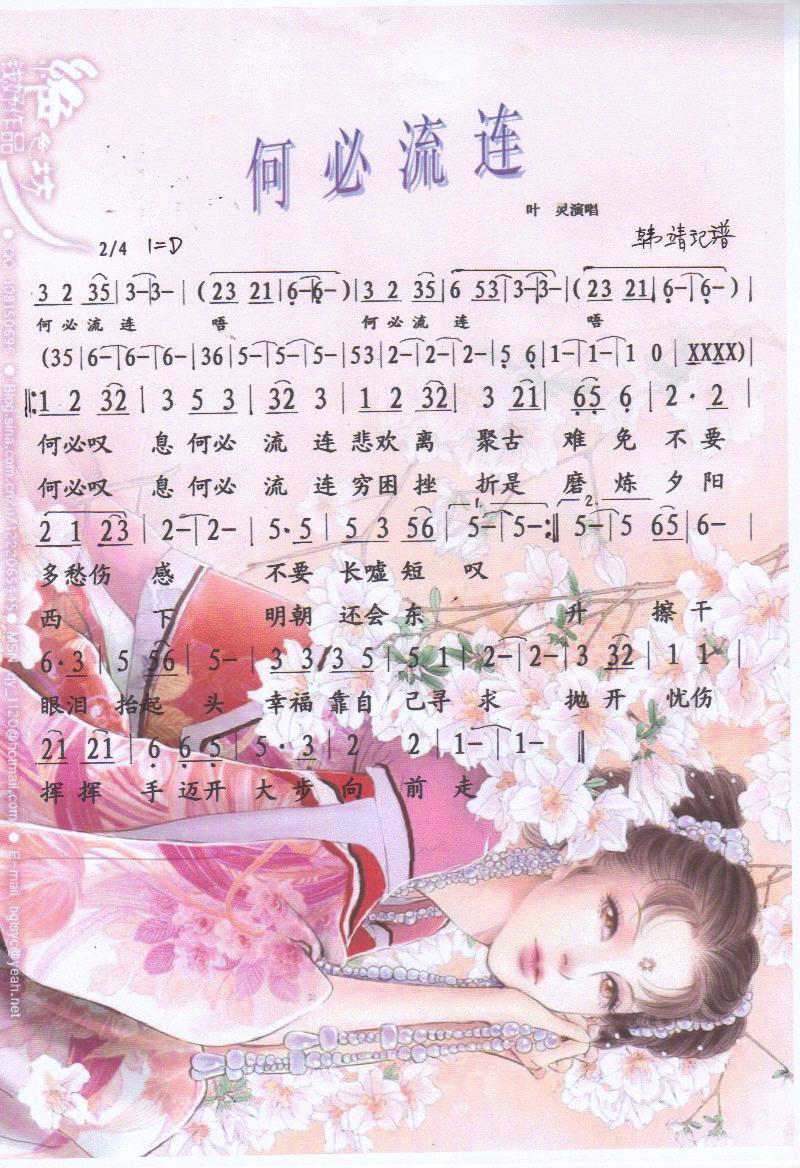 何必流连
叶 灵演唱
2/4 1=D
韩靖记谱
3 2 35|3-|3-|(23 21|6-|6-)|3 2 35|6 53|3-|3-|(23 21|6-|6-)|
何 必 流 连 唔 何 必 流 连 唔
(35|6-|6-|6-|36|5-|5-|5-|53|2-|2-|2-|5 6|1-|1-|1 0|XXXX)|
‖:1 2 32|3 5 3|32 3|1 2 32|3 21|65 6|2·2|
何必叹 息 何必 流 连 悲欢 离 聚古 难 免 不 要
何必叹 息 何必 流 连 穷困 挫 折是 磨 炼 夕 阳
2 1 23|2-|2-|5·5|5 3 56|1. 5-|5-:‖2. 5-|5 65|6-|
多愁伤 感 不要 长嘘 短 叹
西 下 明朝 还会 东 升 擦 干
6·3|5 56|5-|3 3/3 5|5 1|2-|2-|3 32|1 1|
眼泪 抬起 头 幸福 靠自 己寻 求 抛 开 忧伤
21 21|6 6 5|5·3|2 2|1-|1-‖
挥 挥 手 迈开 大 步 向 前 走